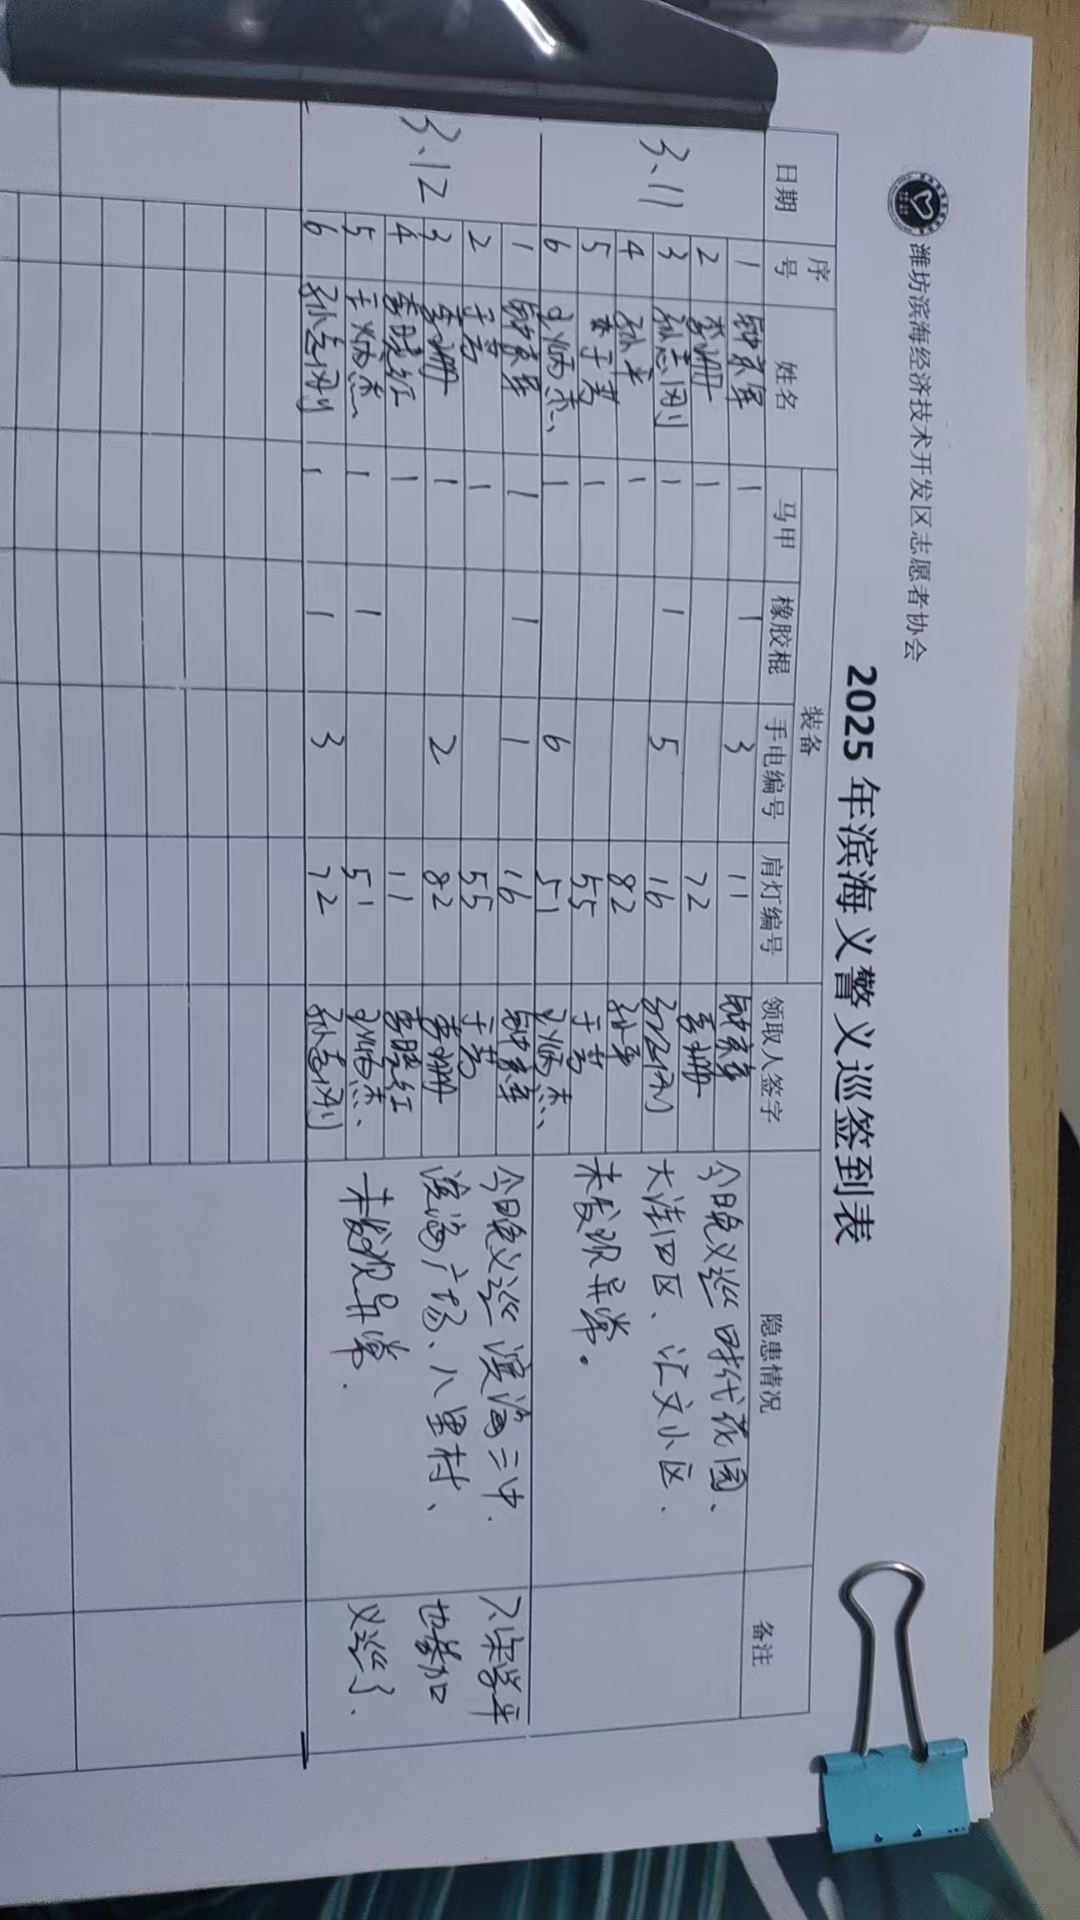 潍坊滨海经济技术开发区志愿者协会
2025年滨海义警义巡签到表
日期 序号 姓名 装备 领取人签字 隐患情况 备注
马甲 橡胶棍 手电编号 肩灯编号
3.11
1 钟京军 1 1 3 11 钟京军
2 李珊 1 72 李珊
3 孙志刚 1 1 5 16 孙志刚
4 孙平 1 82 孙平
5 于芳 1 55 于芳
6 王炳杰 1 6 51 王炳杰
今日晚义巡时代花园、
大连旧区、汇文小区.
未发现异常。
3.12
1 钟京军 1 1 1 16 钟京军
2 于芳 1 55 于芳
3 李珊 1 2 82 李珊
4 李晓红 1 11 李晓红
5 王炳杰 1 1 51 王炳杰
6 孙志刚 1 1 3 72 孙志刚
今日晚义巡滨海二中.
滨海广场、八里村、
未发现异常.
也参加
义巡了.